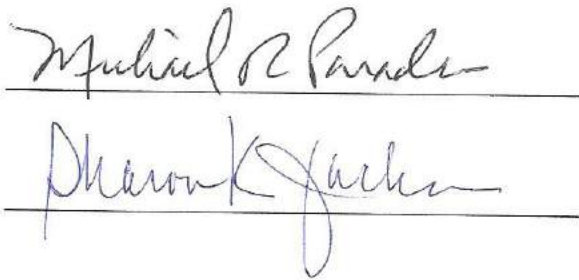 Michael R Parade
Sharon K Jackson